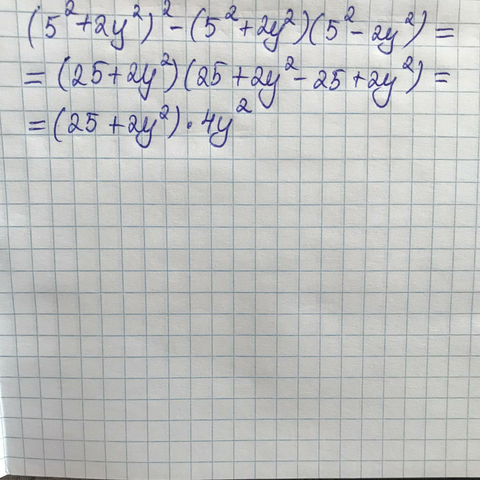 (5²+2y²)²-(5²+2y²)(5²-2y²)=
=(25+2y²)(25+2y²-25+2y²)=
=(25+2y²)·4y²